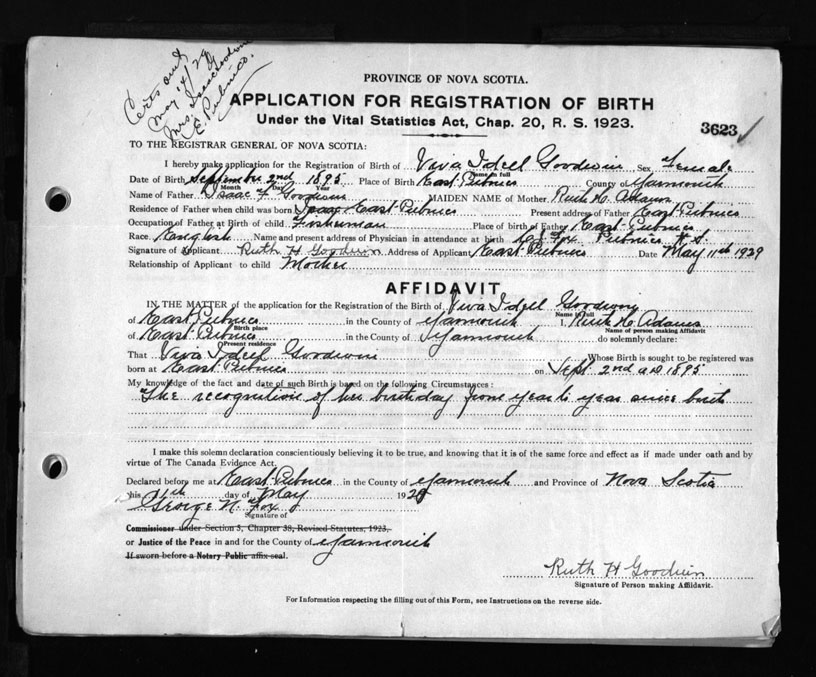 Certs out
May 14/29
Mrs. Isaac Goodwin
E. Pubnico.
PROVINCE OF NOVA SCOTIA.
APPLICATION FOR REGISTRATION OF BIRTH
Under the Vital Statistics Act, Chap. 20, R. S. 1923.
3623
TO THE REGISTRAR GENERAL OF NOVA SCOTIA:
I hereby make application for the Registration of Birth of Viva Idell Goodwin Sex Female
Name in full
Date of Birth September 2nd 1895 Place of Birth East Pubnico County of Yarmouth
Month Day Year
Name of Father Isaac F Goodwin MAIDEN NAME of Mother Ruth H. Adams
Residence of Father when child was born East Pubnico Present address of Father East Pubnico
Occupation of Father at Birth of child Fisherman Place of birth of Father East Pubnico
Race English Name and present address of Physician in attendance at birth Fox Pubnico N.S.
Signature of Applicant Ruth H Goodwin Address of Applicant East Pubnico Date May 11th 1929
Relationship of Applicant to child Mother
AFFIDAVIT
IN THE MATTER of the application for the Registration of the Birth of Viva Idell Goodwin
Name in full
of East Pubnico in the County of Yarmouth I, Ruth H. Adams
Birth place Name of person making Affidavit
of East Pubnico in the County of Yarmouth do solemnly declare:
Present residence
That Viva Idell Goodwin Whose Birth is sought to be registered was
born at East Pubnico on Sept. 2nd A.D 1895
My knowledge of the fact and date of such Birth is based on the following Circumstances:
The recognition of her birthday from year to year since birth
I make this solemn declaration conscientiously believing it to be true, and knowing that it is of the same force and effect as if made under oath and by
virtue of The Canada Evidence Act.
Declared before me at East Pubnico in the County of Yarmouth and Province of Nova Scotia
this 11th day of May 1929
George N. Fox
Signature of
Commissioner under Section 3, Chapter 38, Revised Statutes, 1923,
or Justice of the Peace in and for the County of Yarmouth
If sworn before a Notary Public affix seal.
Ruth H Goodwin
Signature of Person making Affidavit.
For Information respecting the filling out of this Form, see Instructions on the reverse side.